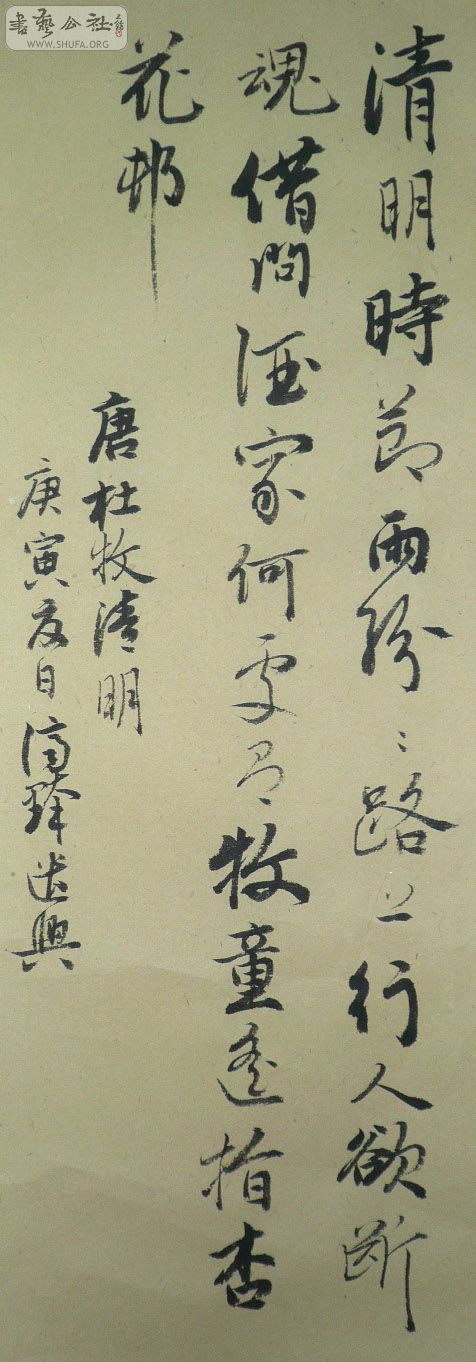 清明時節雨紛〻路上行人欲斷
魂借問酒家何處有牧童遙指杏
花邨
唐杜牧清明
庚寅夏日興
書藝公社
WWW.SHUFA.ORG